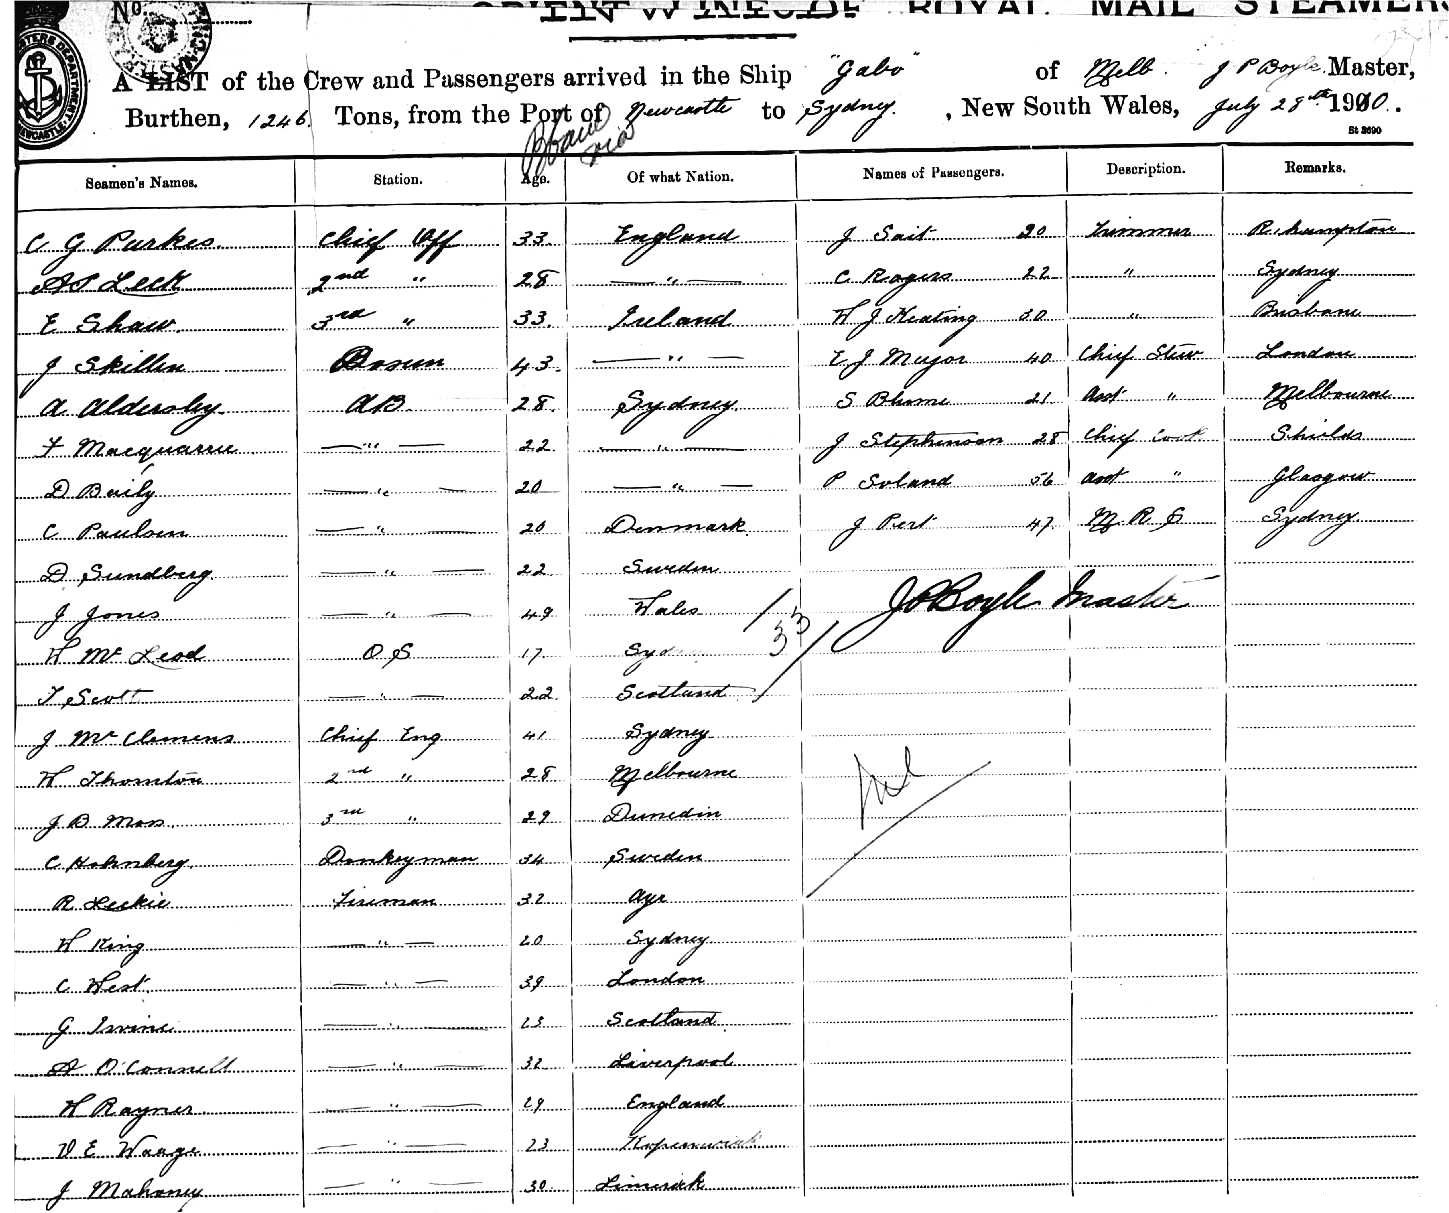 No.
ROYAL MAIL STEAMERS
A LIST of the Crew and Passengers arrived in the Ship "Gabo" of Melb. J P Boyle Master,
Burthen, 1246 Tons, from the Port of Newcastle to Sydney, New South Wales, July 28th 1900.
Bbane via
St 2690
Seamen's Names. Station. Age. Of what Nation. Names of Passengers. Description. Remarks.
C G Parkes Chief Off 33 England J Sait 20 Trimmer
A S Leck 2nd " 28 " C Rogers 22 " Sydney
E Shaw 3rd " 33 Ireland W J Keating 30 " Brisbane
J Skillen Bosun 43 " E J Major 40 Chief Stew London
A Aldersley AB 28 Sydney S Blome 21 Asst " Melbourne
F Macquarrie " 22 " J Stephenson 28 Chief Cook Shields
D Baily " 20 " P Soland 56 Asst " Glasgow
C Paulsen " 20 Denmark J Pert 47 M R S Sydney
D Sundberg " 22 Sweden
J Jones " 49 Wales J P Boyle Master
33
W McLeod O S 17 Syd
T Scott " 22 Scotland
J McClemens Chief Eng 41 Sydney
W Thornton 2nd " 28 Melbourne
J B Moss 3rd " 29 Dunedin
C Hohnberg Donkeyman 34 Sweden
R Leckie Fireman 32 Ayr
W King " 20 Sydney
C West " 39 London
G Irvine " 23 Scotland
A O'Connell " 32 Liverpool
W Rayner " 29 England
V E Waage " 23
J Mahoney " 30 Limerick